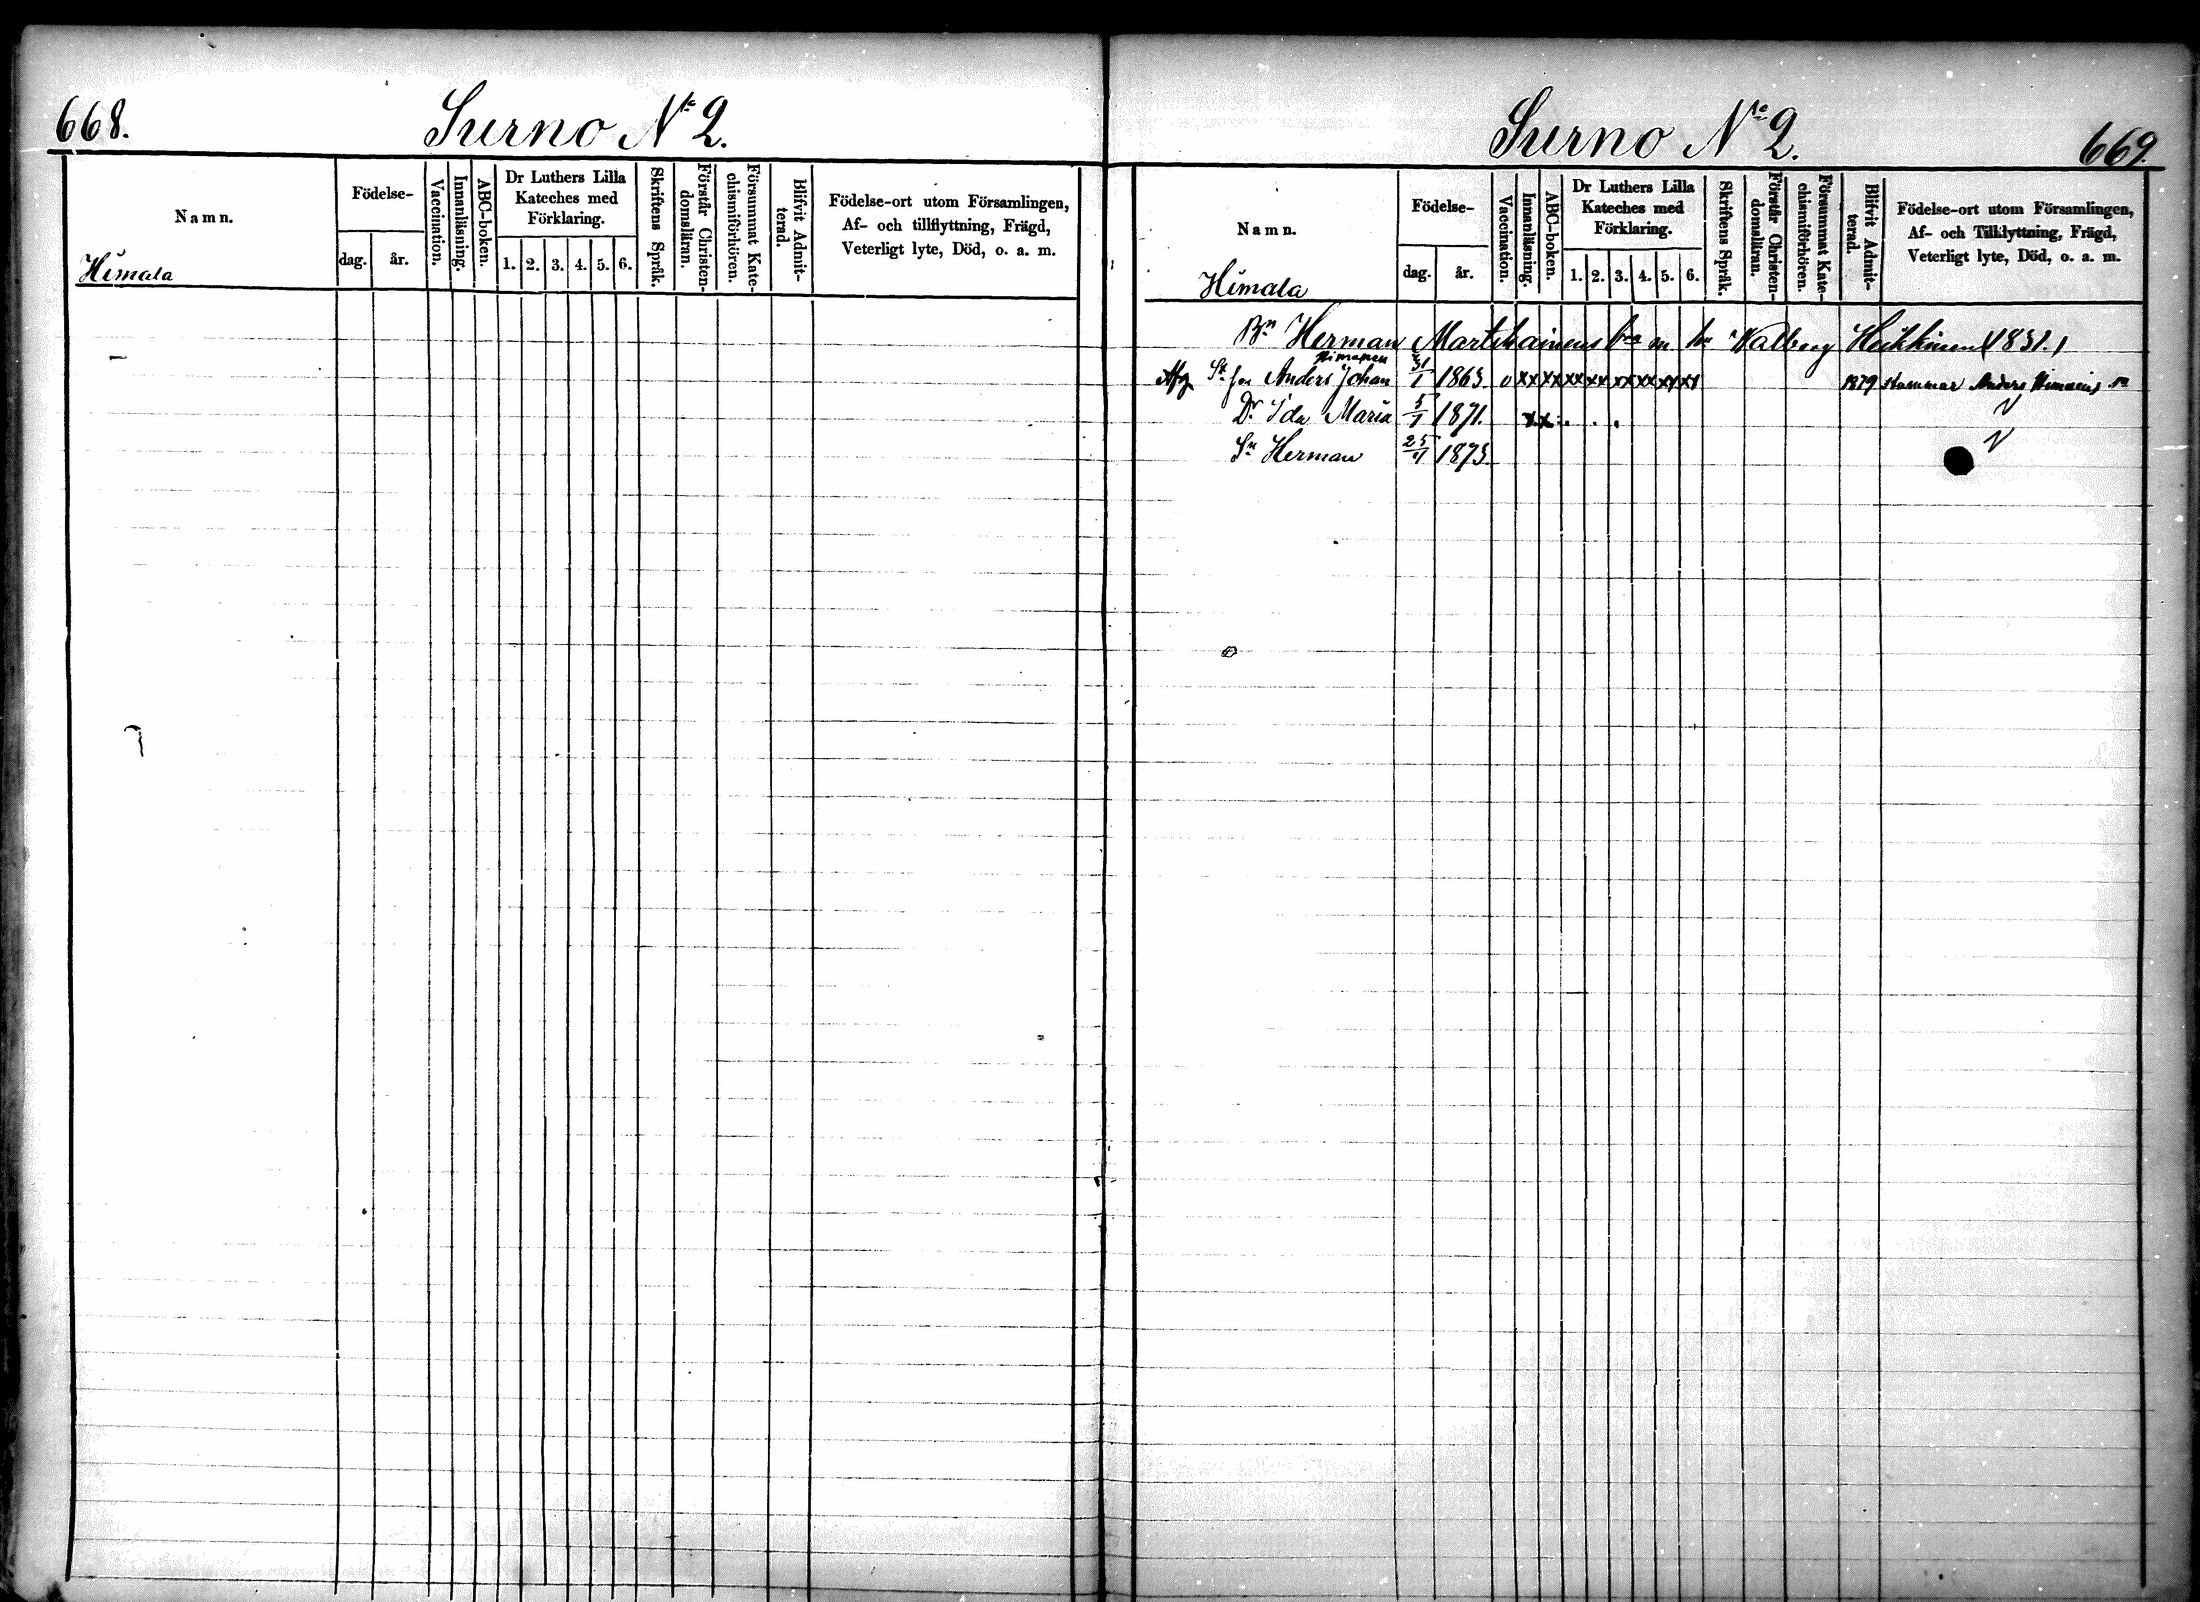 668.
Surno No 2.
Namn.
Födelse-
dag.
år.
Vaccination.
Innanläsning.
ABC-boken.
Dr Luthers Lilla
Kateches med
Förklaring.
1. 2. 3. 4. 5. 6.
Skriftens Språk.
Förstår Christen-
domsläran.
Försummat Kate-
chismiförhören.
Blifvit Admit-
terad.
Födelse-ort utom Församlingen,
Af- och tillflyttning, Frägd,
Veterligt lyte, Död, o. a. m.
Himala
Surno No 2.
669.
Namn.
Födelse-
dag.
år.
Vaccination.
Innanläsning.
ABC-boken.
Dr Luthers Lilla
Kateches med
Förklaring.
1. 2. 3. 4. 5. 6.
Skriftens Språk.
Förstår Christen-
domsläran.
Försummat Kate-
chismiförhören.
Blifvit Admit-
terad.
Födelse-ort utom Församlingen,
Af- och Tillflyttning, Frägd,
Veterligt lyte, Död, o. a. m.
Himala
Bn Herman Martikainens m. Valborg Heikkinen (1831.)
Anders Johan 31/1 1863. v xx xx xx xx xx xx xx xx 1879 Anders
Dr Ida Maria 5/1 1871. x x . . .
Sn Herman 25/4 1873.